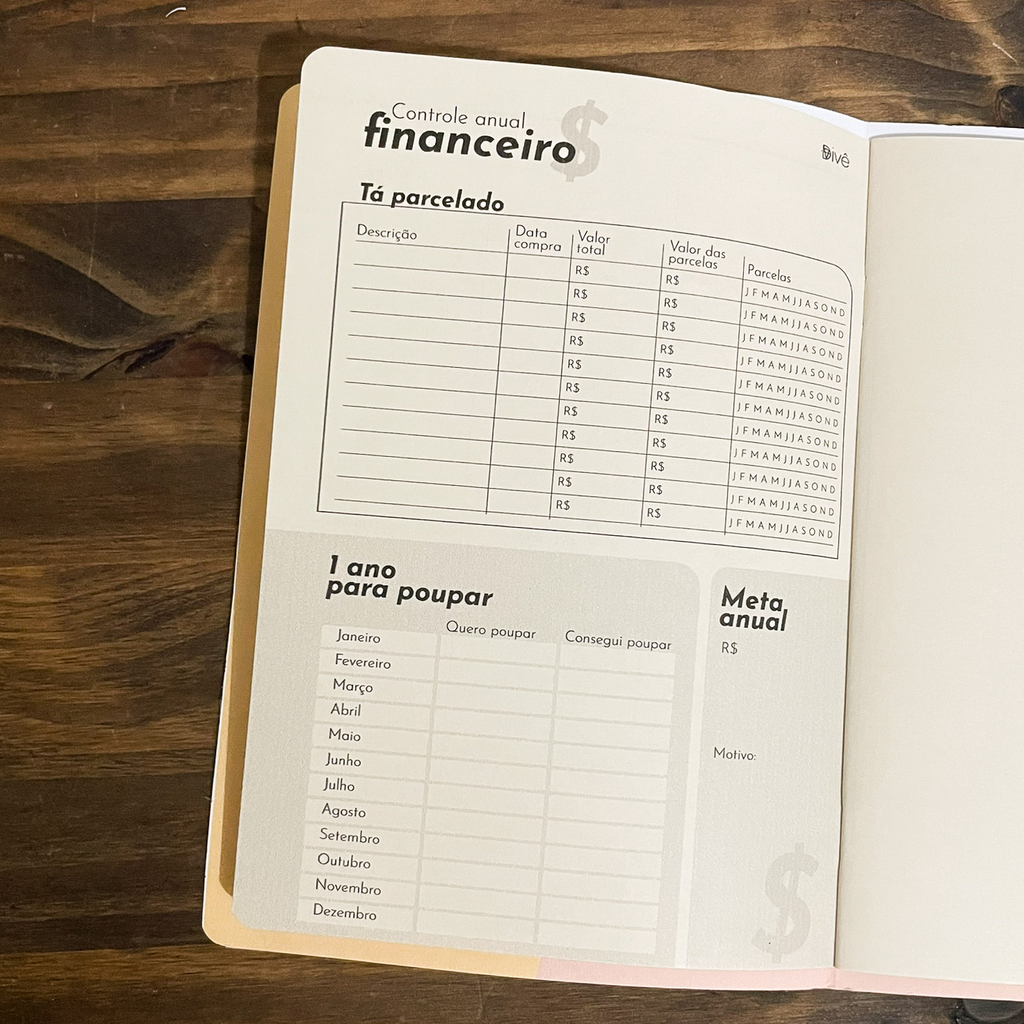 Controle anual
financeiro $
Divê
Tá parcelado
Descrição Data compra Valor total Valor das parcelas Parcelas
R$ R$ J F M A M J J A S O N D
R$ R$ J F M A M J J A S O N D
R$ R$ J F M A M J J A S O N D
R$ R$ J F M A M J J A S O N D
R$ R$ J F M A M J J A S O N D
R$ R$ J F M A M J J A S O N D
R$ R$ J F M A M J J A S O N D
R$ R$ J F M A M J J A S O N D
R$ R$ J F M A M J J A S O N D
R$ R$ J F M A M J J A S O N D
R$ R$ J F M A M J J A S O N D
1 ano
para poupar
Quero poupar Consegui poupar
Janeiro
Fevereiro
Março
Abril
Maio
Junho
Julho
Agosto
Setembro
Outubro
Novembro
Dezembro
Meta
anual
R$
Motivo:
$